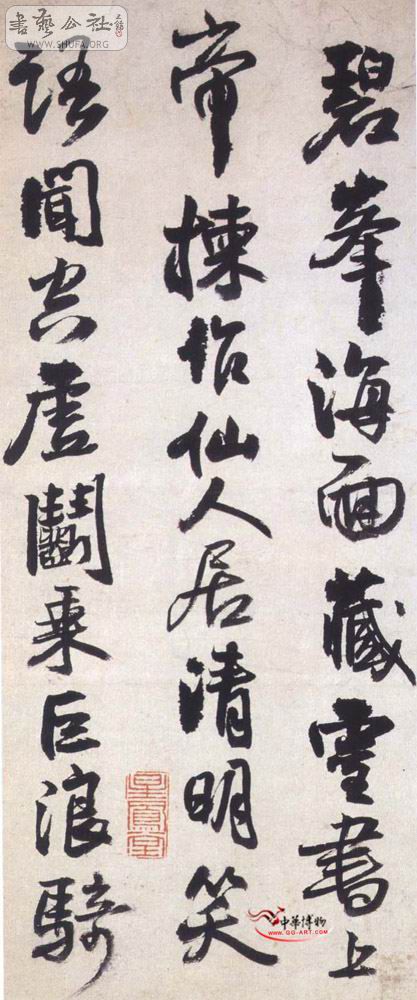 碧峯海面藏靈書上
帝揀作仙人居清明笑
語聞空虛鬭乘巨浪騎
書藝公社
WWW.SHUFA.ORG
中華博物
WWW.GG-ART.COM